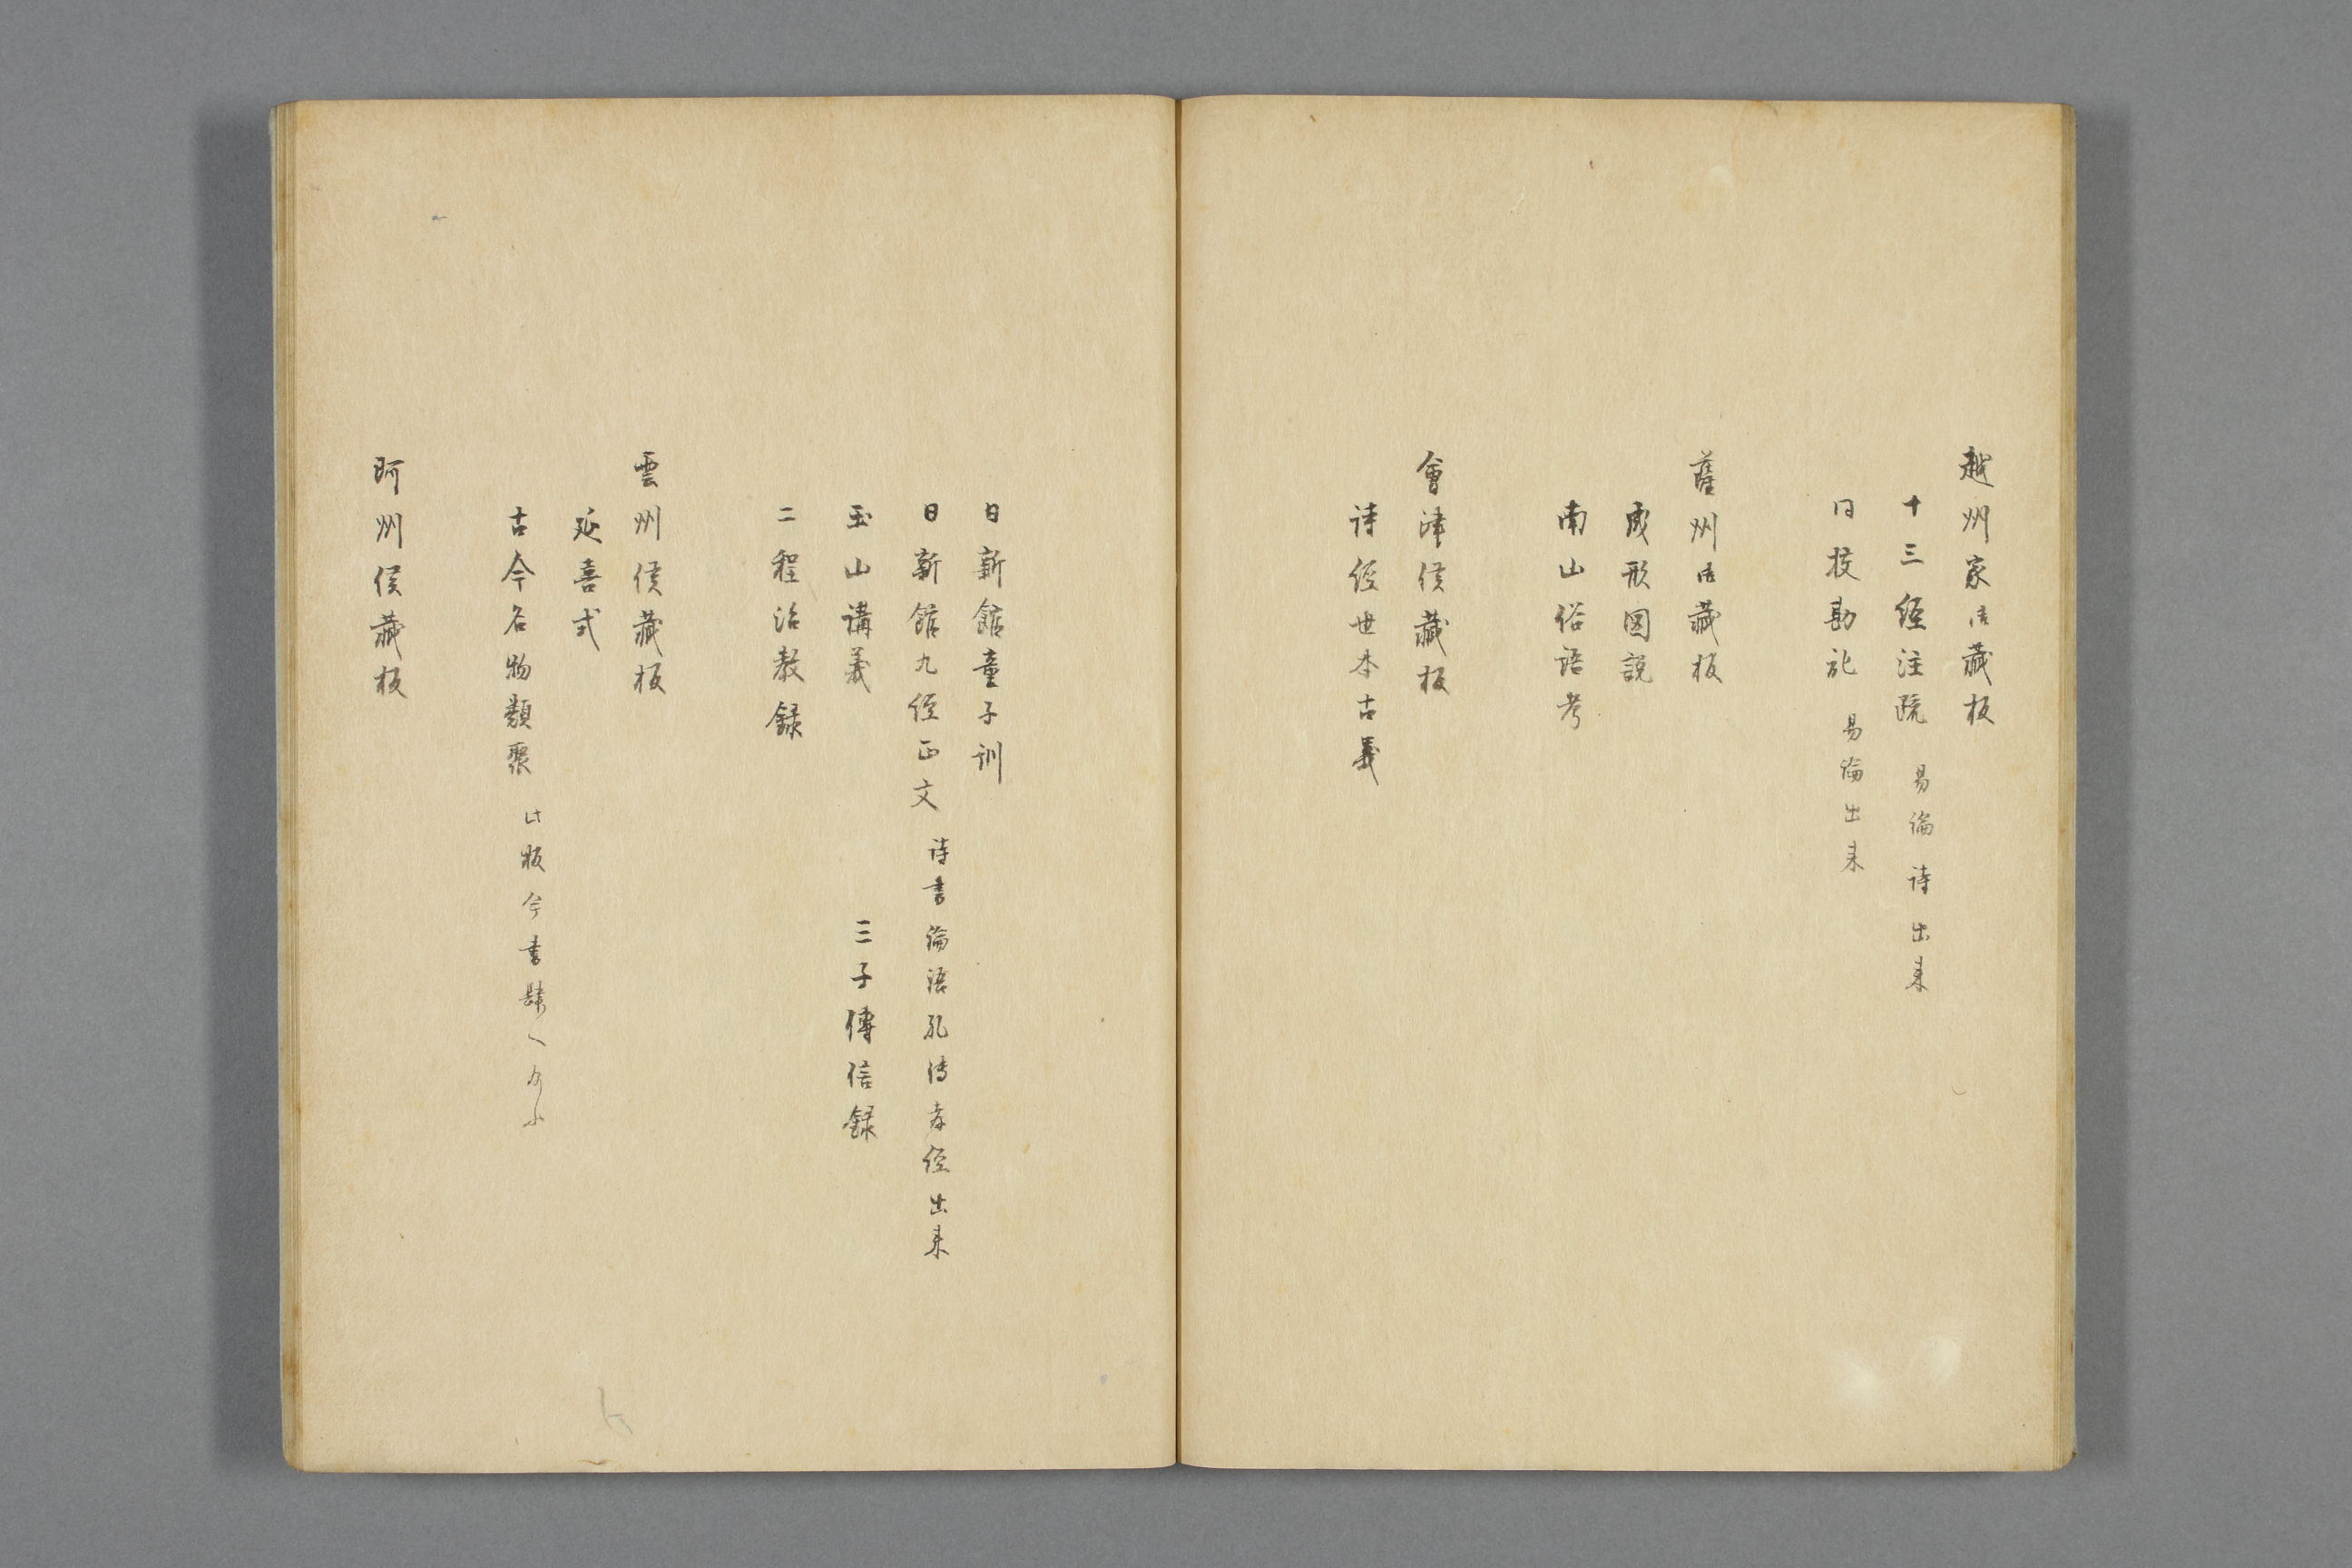 越州家御藏板
十三經注疏 易論詩出来
同挍勘記 易論出来
薩州御藏板
成形図説
南山俗語考
會津侯藏板
詩經世本古義
日新館童子訓
日新館九經正文 詩書論語孔傳孝經出来
玉山講義 三子傳信録
二程治教録
雲州侯藏板
延喜式
古今名物類聚 此板今書肆へ
阿州侯藏板